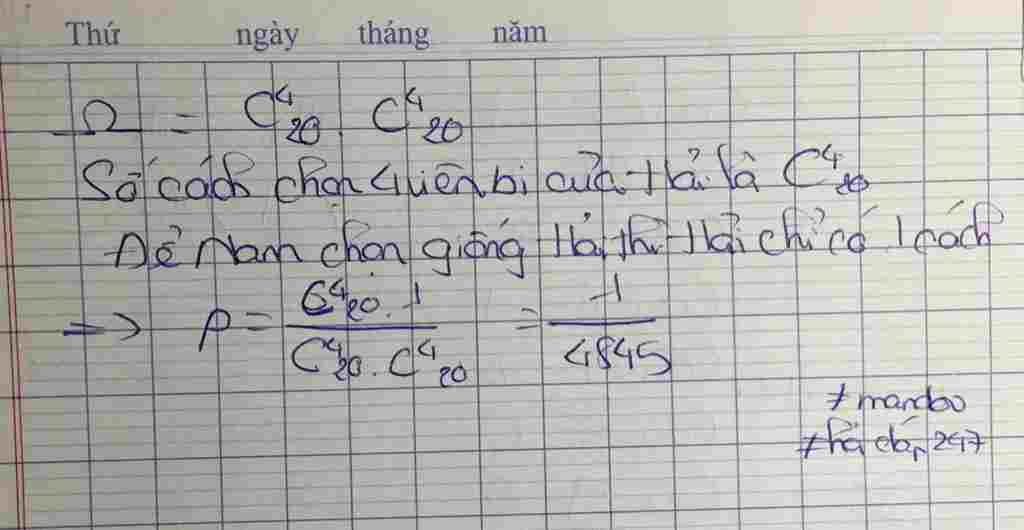 Thứ ngày tháng năm
Ω = C⁴₂₀ . C⁴₂₀
Số cách chọn 4 viên bi của Hải là C⁴₂₀
Để Nam chọn giống Hải thì Hải chỉ có 1 cách
=> P = (C⁴₂₀ . 1) / (C⁴₂₀ . C⁴₂₀) = 1 / 4845
≠ mandoo
≠ hỏi đáp 247